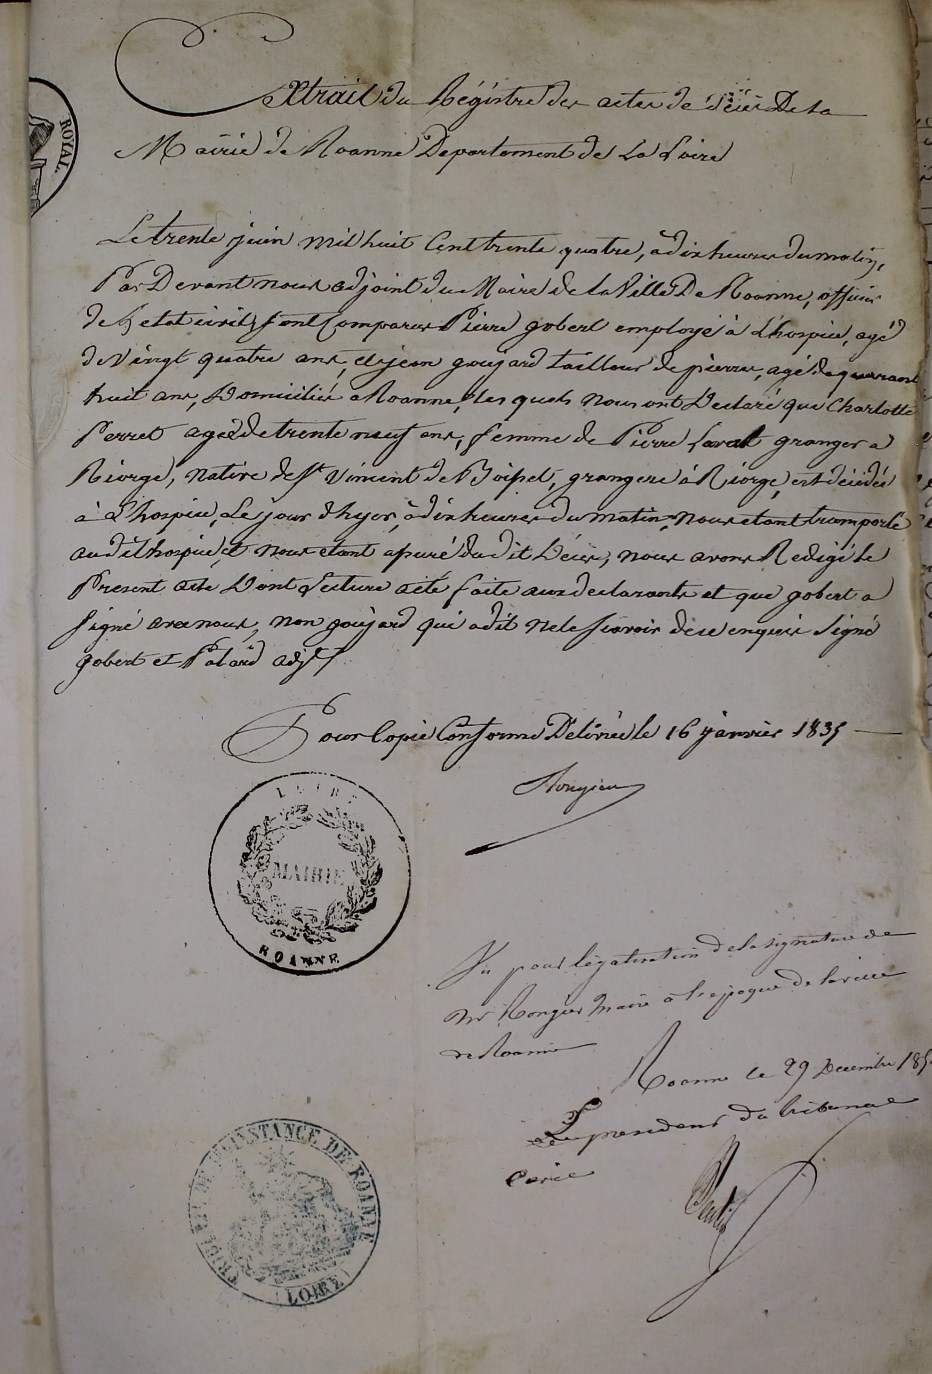 Extrait du Régistre des actes de Décès De la
Mairie de Roanne Departement de La Loire
ROYAL
Le trente juin mil huit Cent trente quatre, à dix heures du matin,
Par Devant nous adjoint du Maire de la Ville De Roanne, officier
de L'etat civil, sont Comparus Pierre gobert employé à L'hospice, agé
de Vingt quatre ans, et jean goujard tailleur de pierre, agé de quarant
huit ans, Domiciliés a Roanne, les quels nous ont Declaré que Charlotte
Perret ageé de trente neuf ans, femme de Pierre Laval granger a
Riorge, native de St Vincent de Boisset, grangere à Riorge, est décédée
à L'hospice, Le jour d'hyer, à dix heures du matin, nous etant transporté
au dit hospice, et nous etant assuré du dit Décès, nous avons Redigé le
Present acte Dont Lecture a été faite aux declarants et que gobert a
signé avec nous, non goujard qui a dit ne le scavoir de ce enquis signé
gobert et Palard adjt
Pour Copie Conforme Délivrée le 16 janvier 1835
Rougier
LOIRE
MAIRIE
ROANNE
Vu pour légalisation de la signature de
Mr Rongier Maire à l'epoque de la ville
de Roanne
Roanne le 29 Decembre 185
Le president du tribunal
civil
TRIBUNAL DE 1ERE INSTANCE DE ROANNE
(LOIRE)